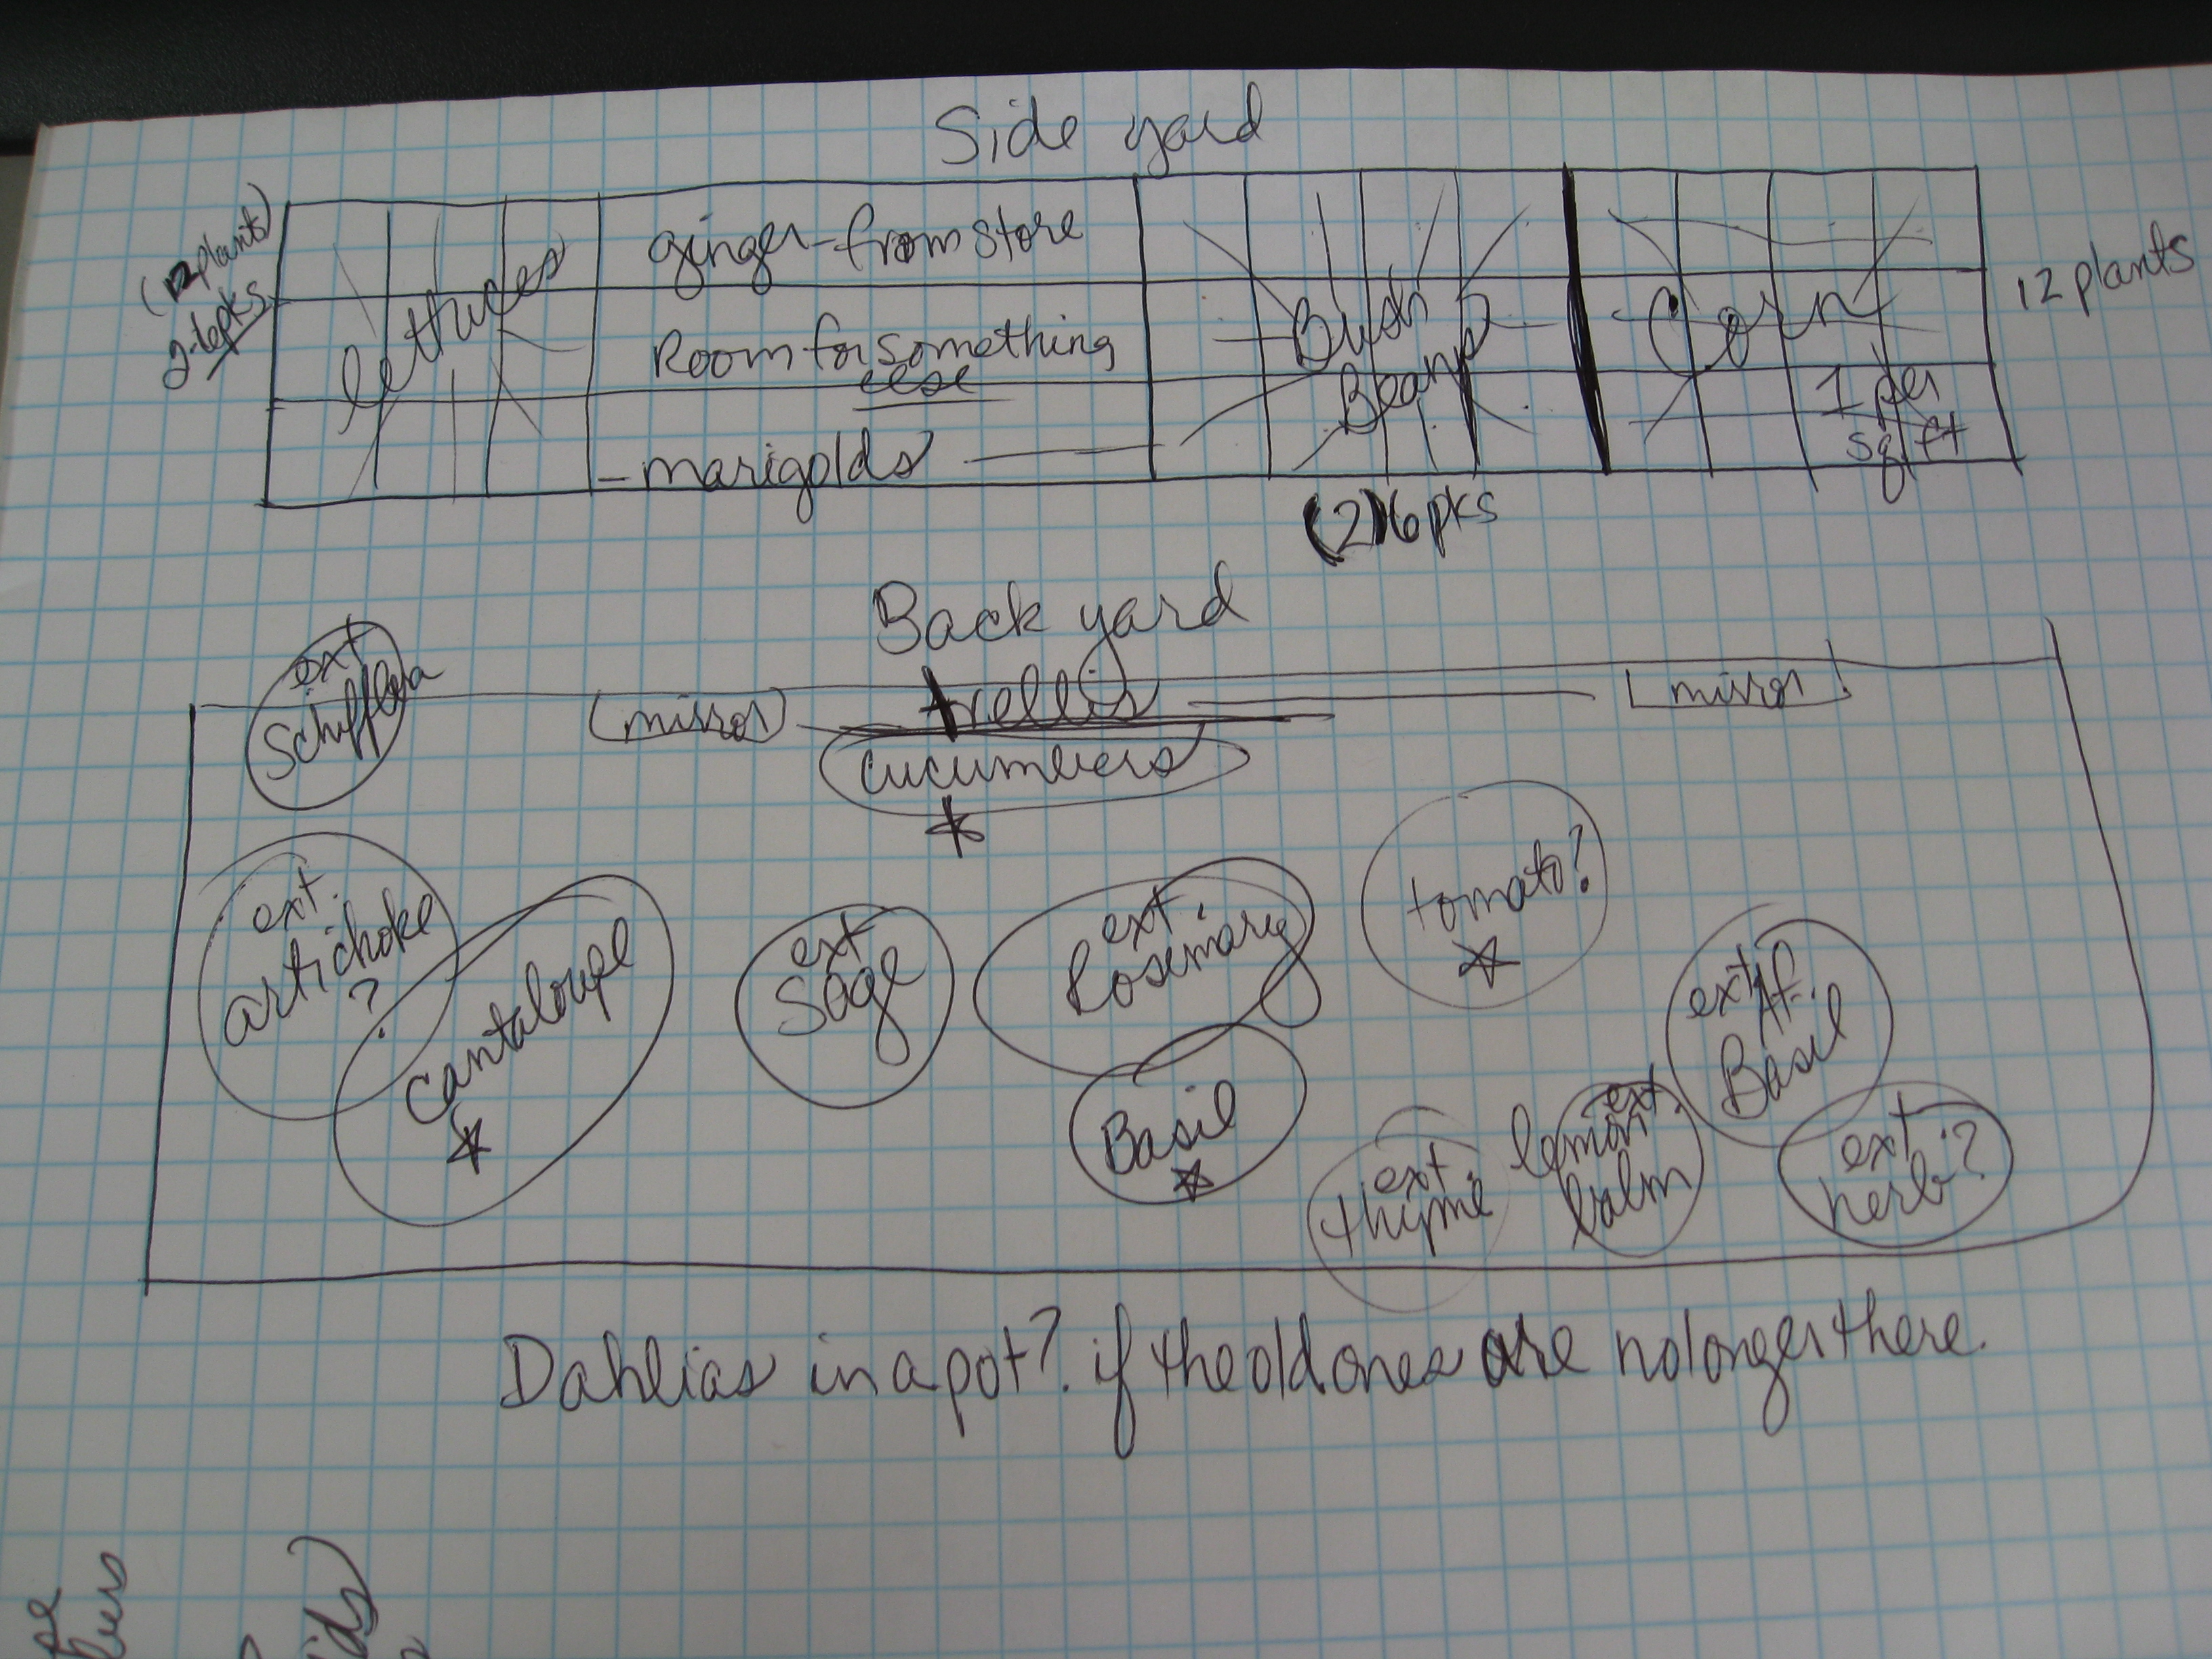 Side yard
(12 plants)
2-6pks
lettuces
ginger-from store
Room for something
else
-marigolds
Bush
Beans
(2) 6 pks
Corn
1 per
sq ft
12 plants
Back yard
ext
Schifflera
(mirror)
trellis
[mirror]
cucumbers
ext.
artichoke
?
cantaloupe
ext
Sage
ext.
Rosemary
tomato?
Basil
ext Af.
Basil
ext.
thyme
ext.
lemon
balm
ext.
herb?
Dahlias in a pot?. if the old ones are no longer there.